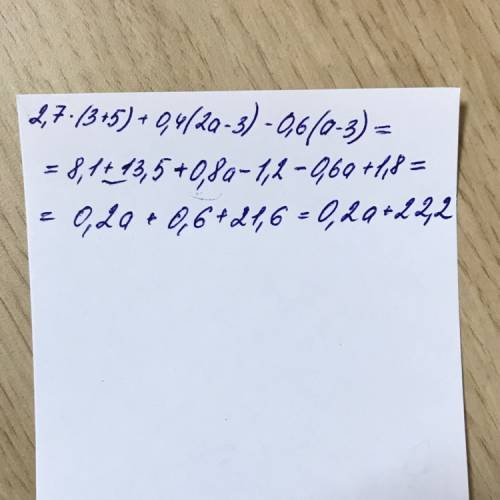 2,7·(3+5) + 0,4(2a-3) - 0,6(a-3) =
= 8,1+13,5+0,8a-1,2-0,6a+1,8 =
= 0,2a + 0,6+21,6 = 0,2a+22,2